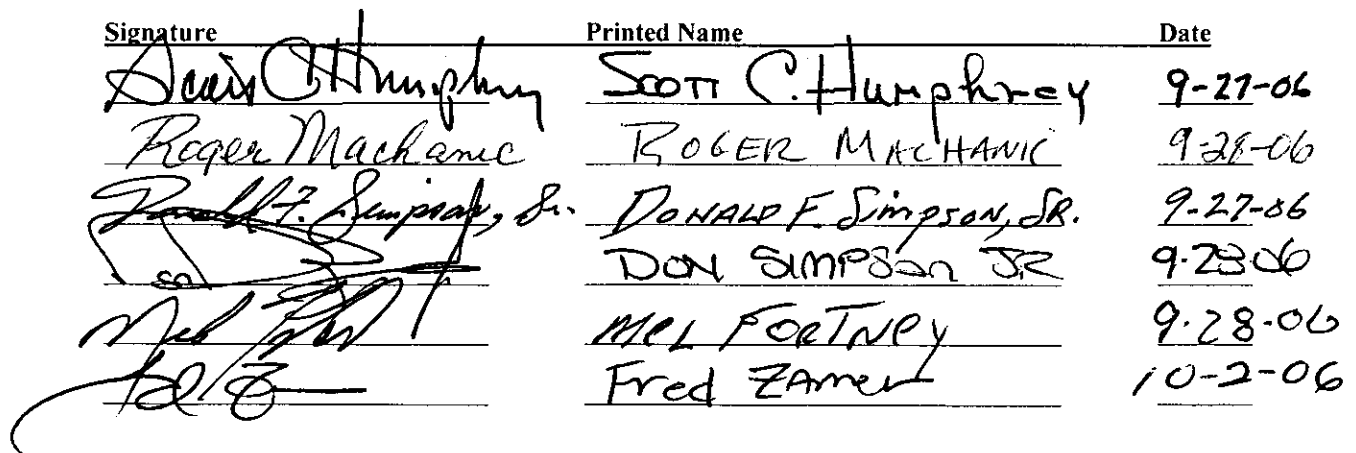 Signature Printed Name Date
Scott C Humphrey Scott C. Humphrey 9-27-06
Roger Machanic ROGER MACHANIC 9-28-06
Donald F. Simpson, Sr. DONALD F. Simpson, SR. 9-27-06
DON SIMPSON JR 9-28-06
Mel FORTNEY 9-28-06
Fred ZAmer 10-2-06